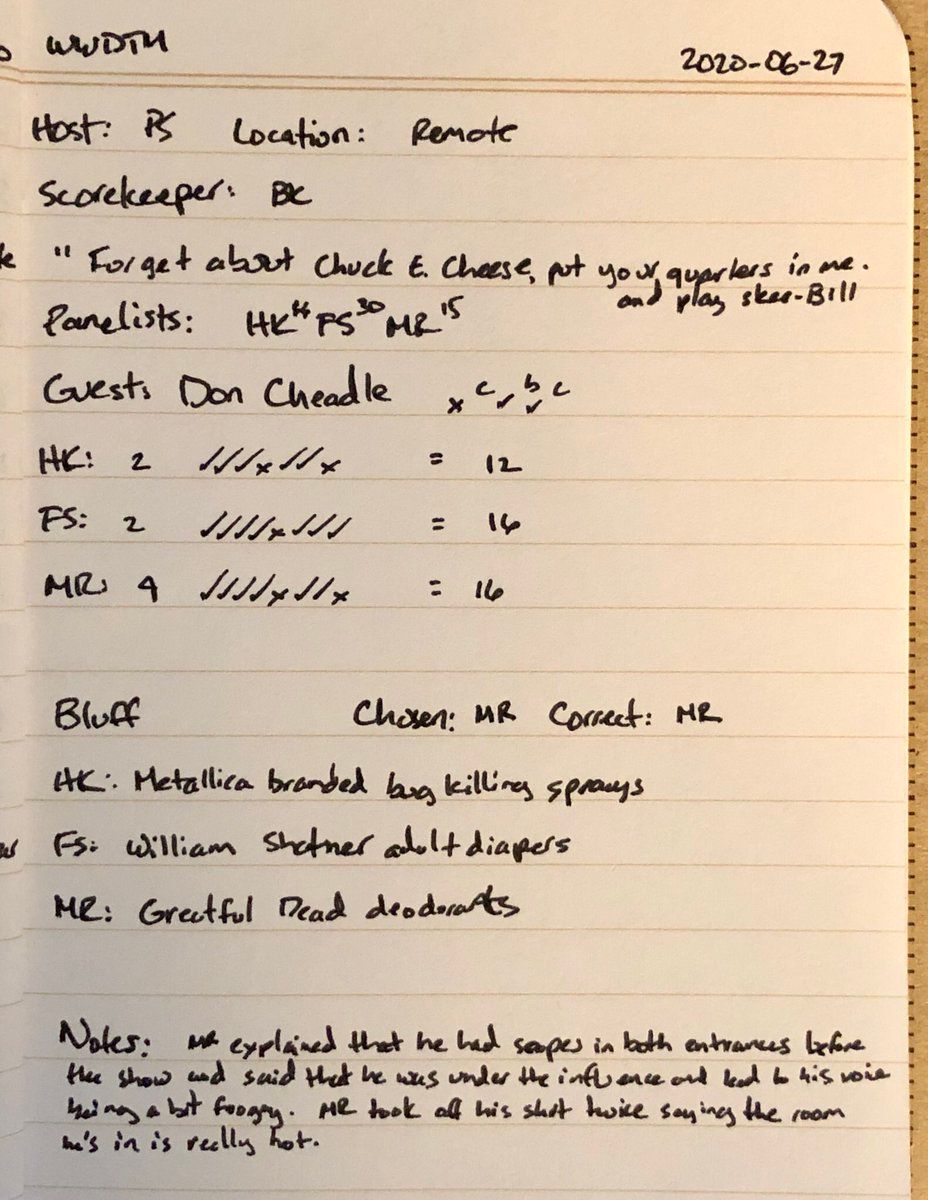 WWDTM 2020-06-27
Host: PS Location: Remote
Scorekeeper: BK
" Forget about Chuck E. Cheese, put your quarters in me.
and play skee-Bill
Panelists: HK FS30 MR15
Guest: Don Cheadle x c ✓ b ✓ c
HK: 2 ✓✓✓x✓✓x = 12
FS: 2 ✓✓✓✓x✓✓✓ = 16
MR: 4 ✓✓✓✓x✓✓x = 16
Bluff Chosen: MR Correct: MR
HK: Metallica branded bug killing sprays
FS: William Shatner adult diapers
MR: Greatful Dead deodorants
Notes: MR explained that he had scopes in both entrances before
the show and said that he was under the influence and lead to his voice
being a bit foggy. MR took off his shirt twice saying the room
he's in is really hot.